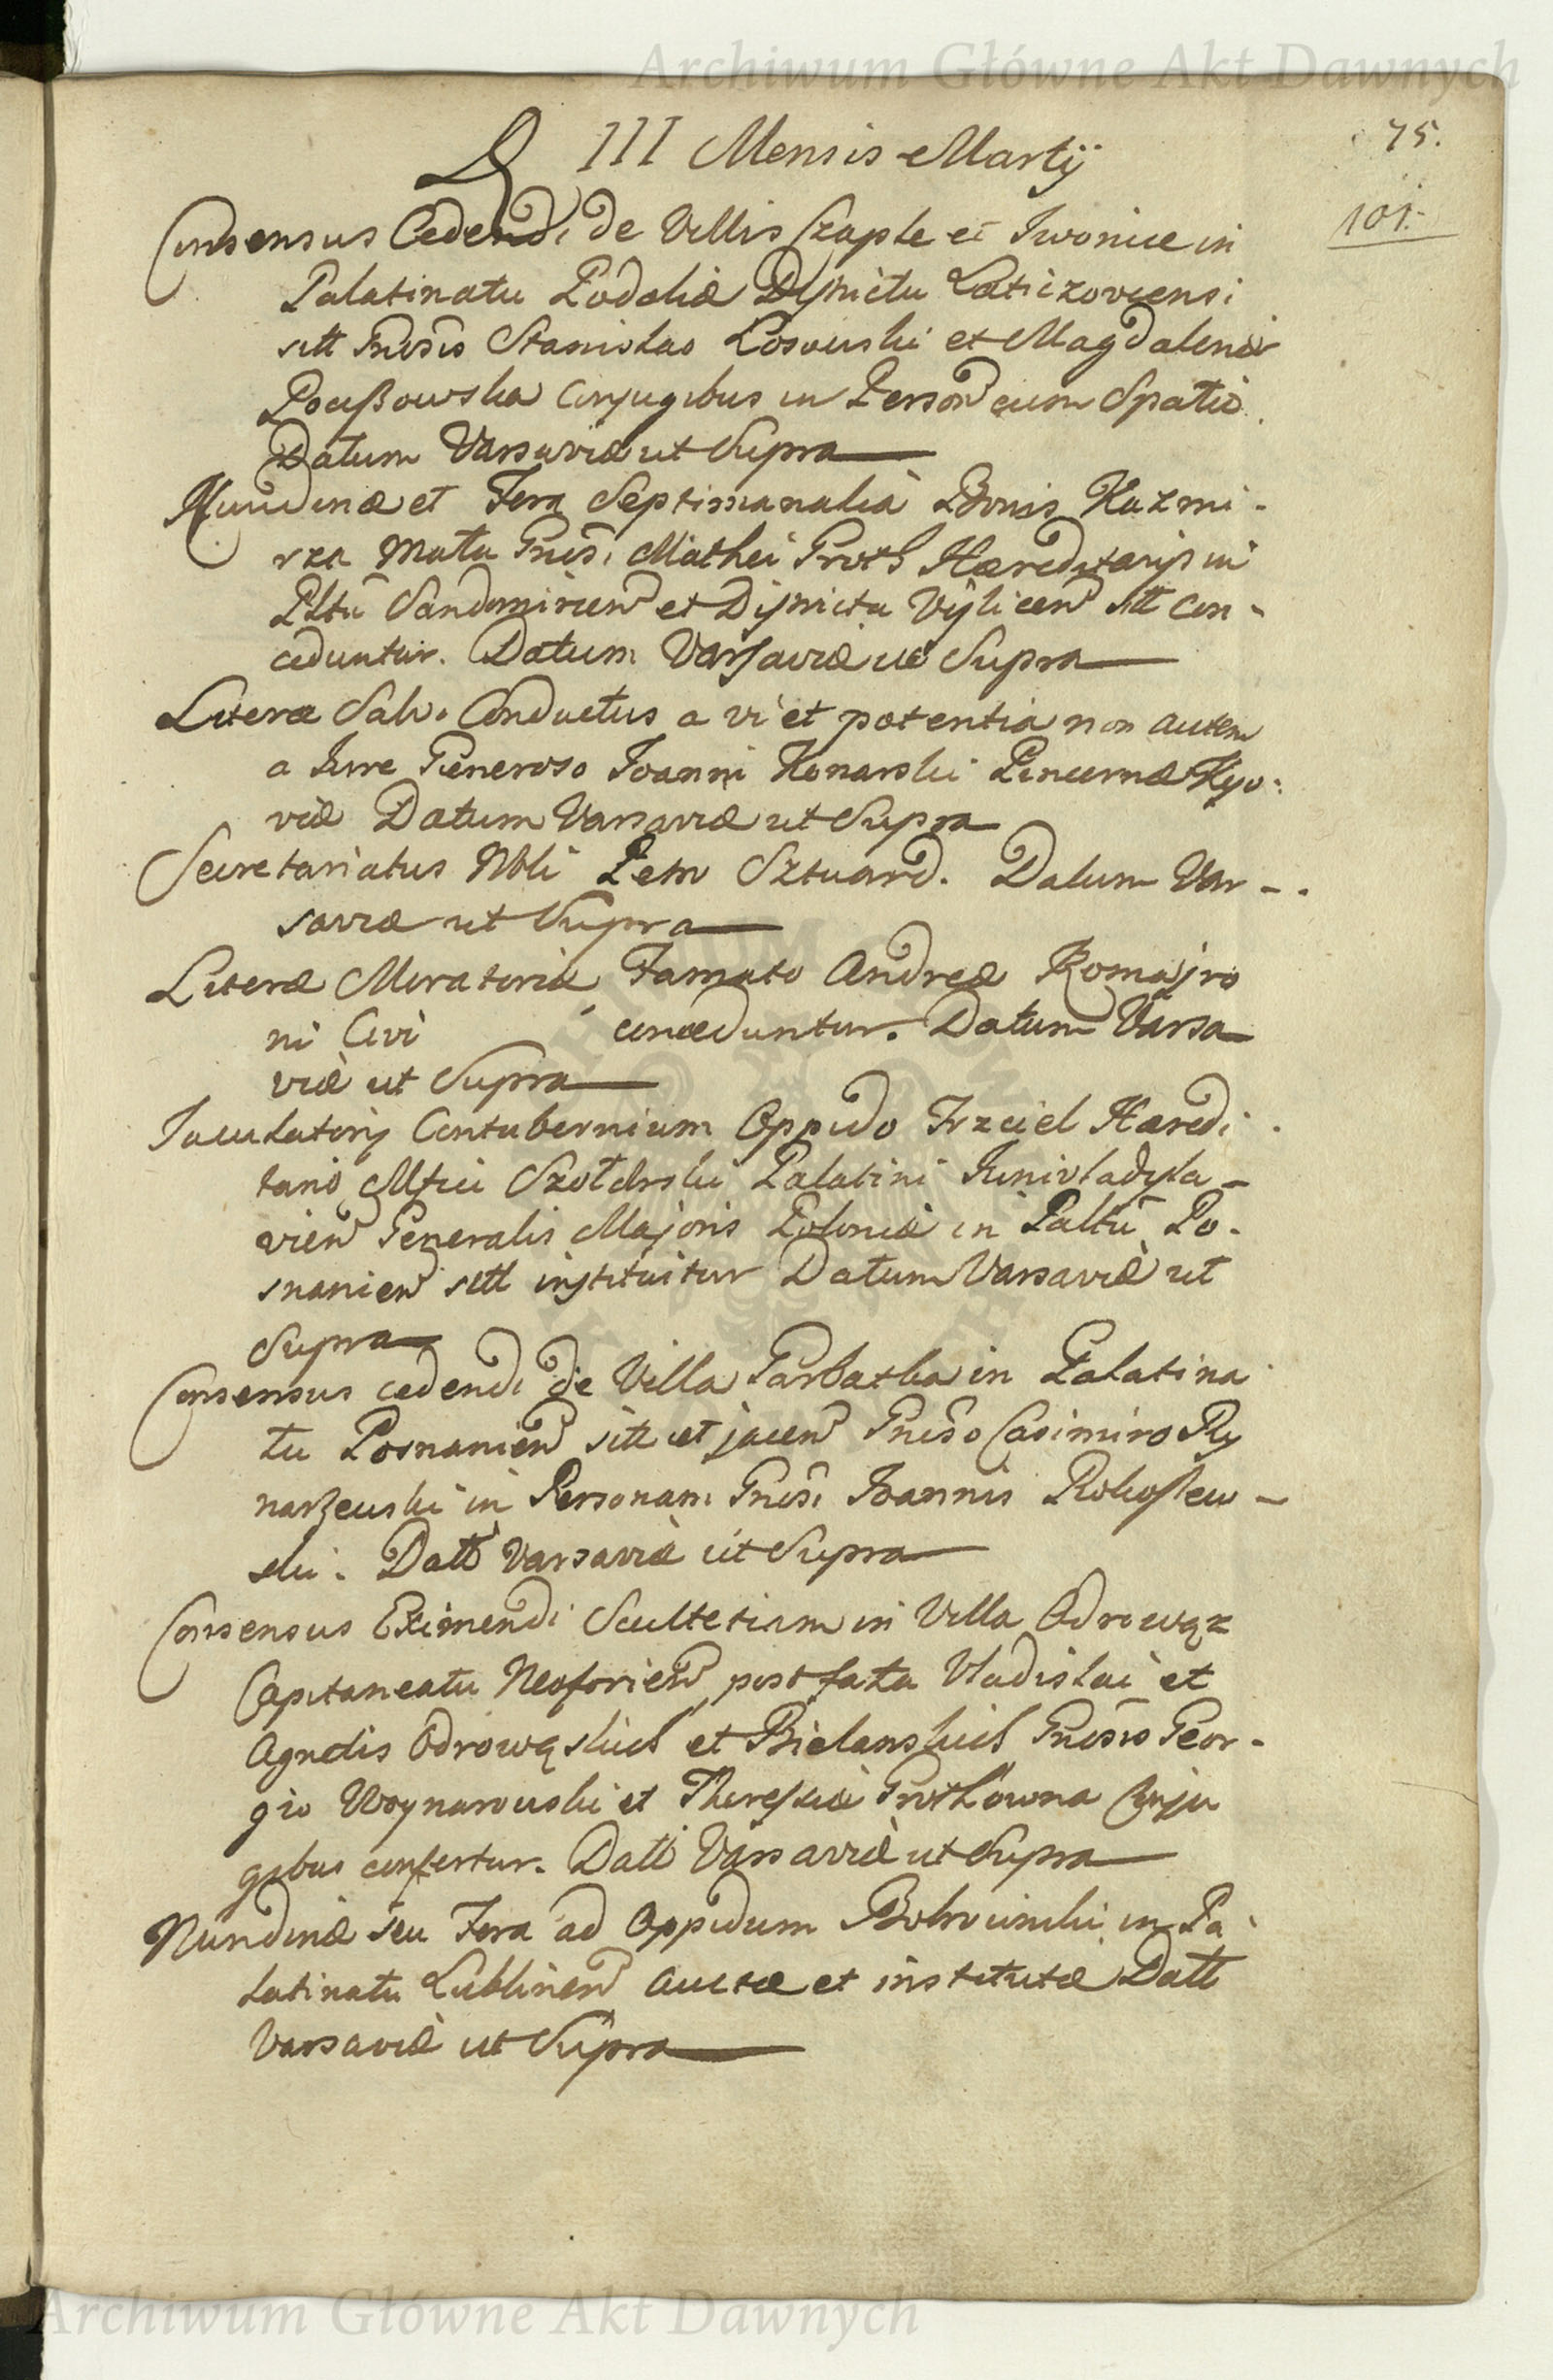 Archiwum Główne Akt Dawnych
75.
D III Mensis Martij
101.
Consensus Cedendi de Villis Czaple et Iwonice in
Palatinatu Podoliæ Districtu Laticzoviensi
sitt Gnosis Stanislao Losowski et Magdalenæ
Conjugibus in Person cum Spatio
Datum Varsaviæ ut Supra
Nundinæ et Fora Septimanalia Bonis Kazmi-
rza Mała Gnosi Mathei Groth Hæreditarijs in
Pltu Sandomirien et Districtu Vislicen sitt con-
ceduntur. Datum Varsaviæ ut Supra
Literæ Salvi Conductus a vi et potentia non autem
a Iure Generoso Joanni Konarski Pincernæ Kyo-
viæ Datum Varsaviæ ut Supra
Secretariatus Nbli Petro Sztuard. Datum Var-
saviæ ut Supra
Literæ Moratoriæ Famato Andreæ Romajro
ni Civi conceduntur. Datum Varsa
viæ ut Supra
Jaculatorij Contubernium Oppido Trzciel Hæredi
tario Mfici Szołdrski Palatini Junivladisla-
vien Generalis Majoris Poloniæ in Paltu Po-
snanien sitt instituitur Datum Varsaviæ ut
Supra
Consensus cedendi de Villa Garbatka in Palatina
tu Posnanien sitt et jacen Gnoso Casimiro Ry
narzewski in Personam Gnosi Joannis
ski. Datt Varsaviæ ut Supra
Consensus Eximendi Scultetiam in Villa Odrowąz
Capitaneatu Neoforien post fata Vladislai et
Agnetis Odrowąskich et Bielanskich Gnosis Geor-
gio Woynarowski et Theresiæ Grothowna Conju
gibus confertur. Datt Varsaviæ ut Supra
Nundinæ seu Fora ad Oppidum Bobrowniki in Pa
latinatu Lublinen auctæ et institutæ Datt
Varsaviæ ut Supra
Archiwum Główne Akt Dawnych